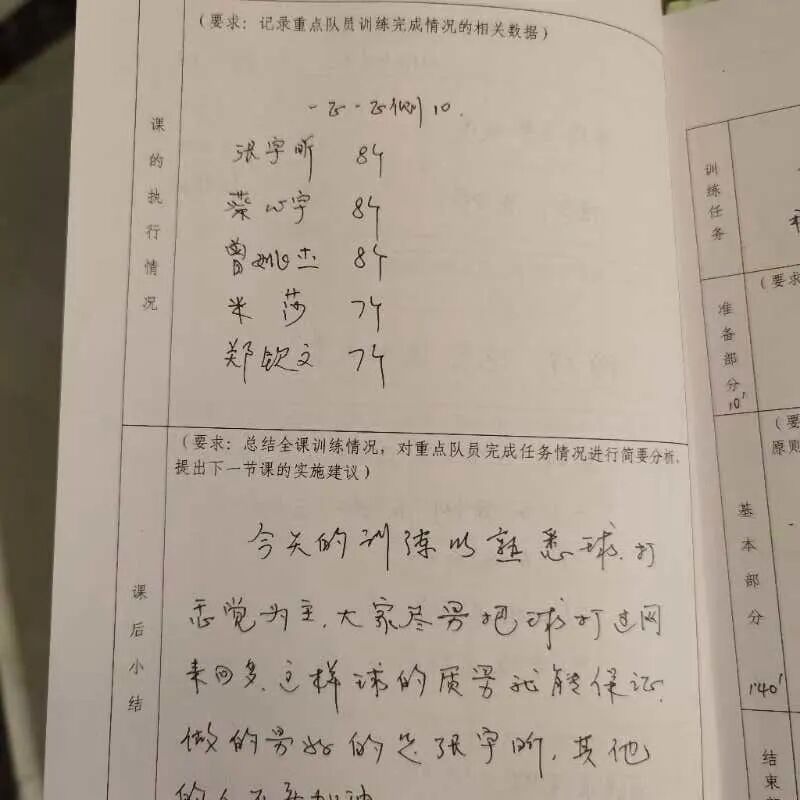 (要求：记录重点队员训练完成情况的相关数据)
课的执行情况
一正一正例 10.
张宇昕 84
蔡心宇 84
曾姚杰 84
米莎 74
郑钦文 74
(要求：总结全课训练情况，对重点队员完成任务情况进行简要分析，
提出下一节课的实施建议)
课后小结
今天的训练以熟悉球.打
感觉为主.大家尽量把球打过网
来回多.这样球的质量就能保证.
做的最好的是张宇昕，其他
的人
训练任务
(要求
准备部分
10'
(要
原则
基本部分
1'40'
结束